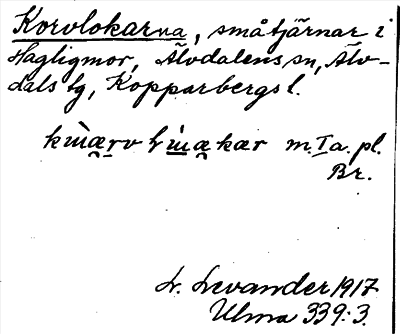 Korvlokarna, småtjärnar i
Hagligmor, Älvdalens sn, Älv-
dals tg, Kopparbergs l.
m. Ia. pl.
Br.
L. Levander 1917
Ulma 339:3.